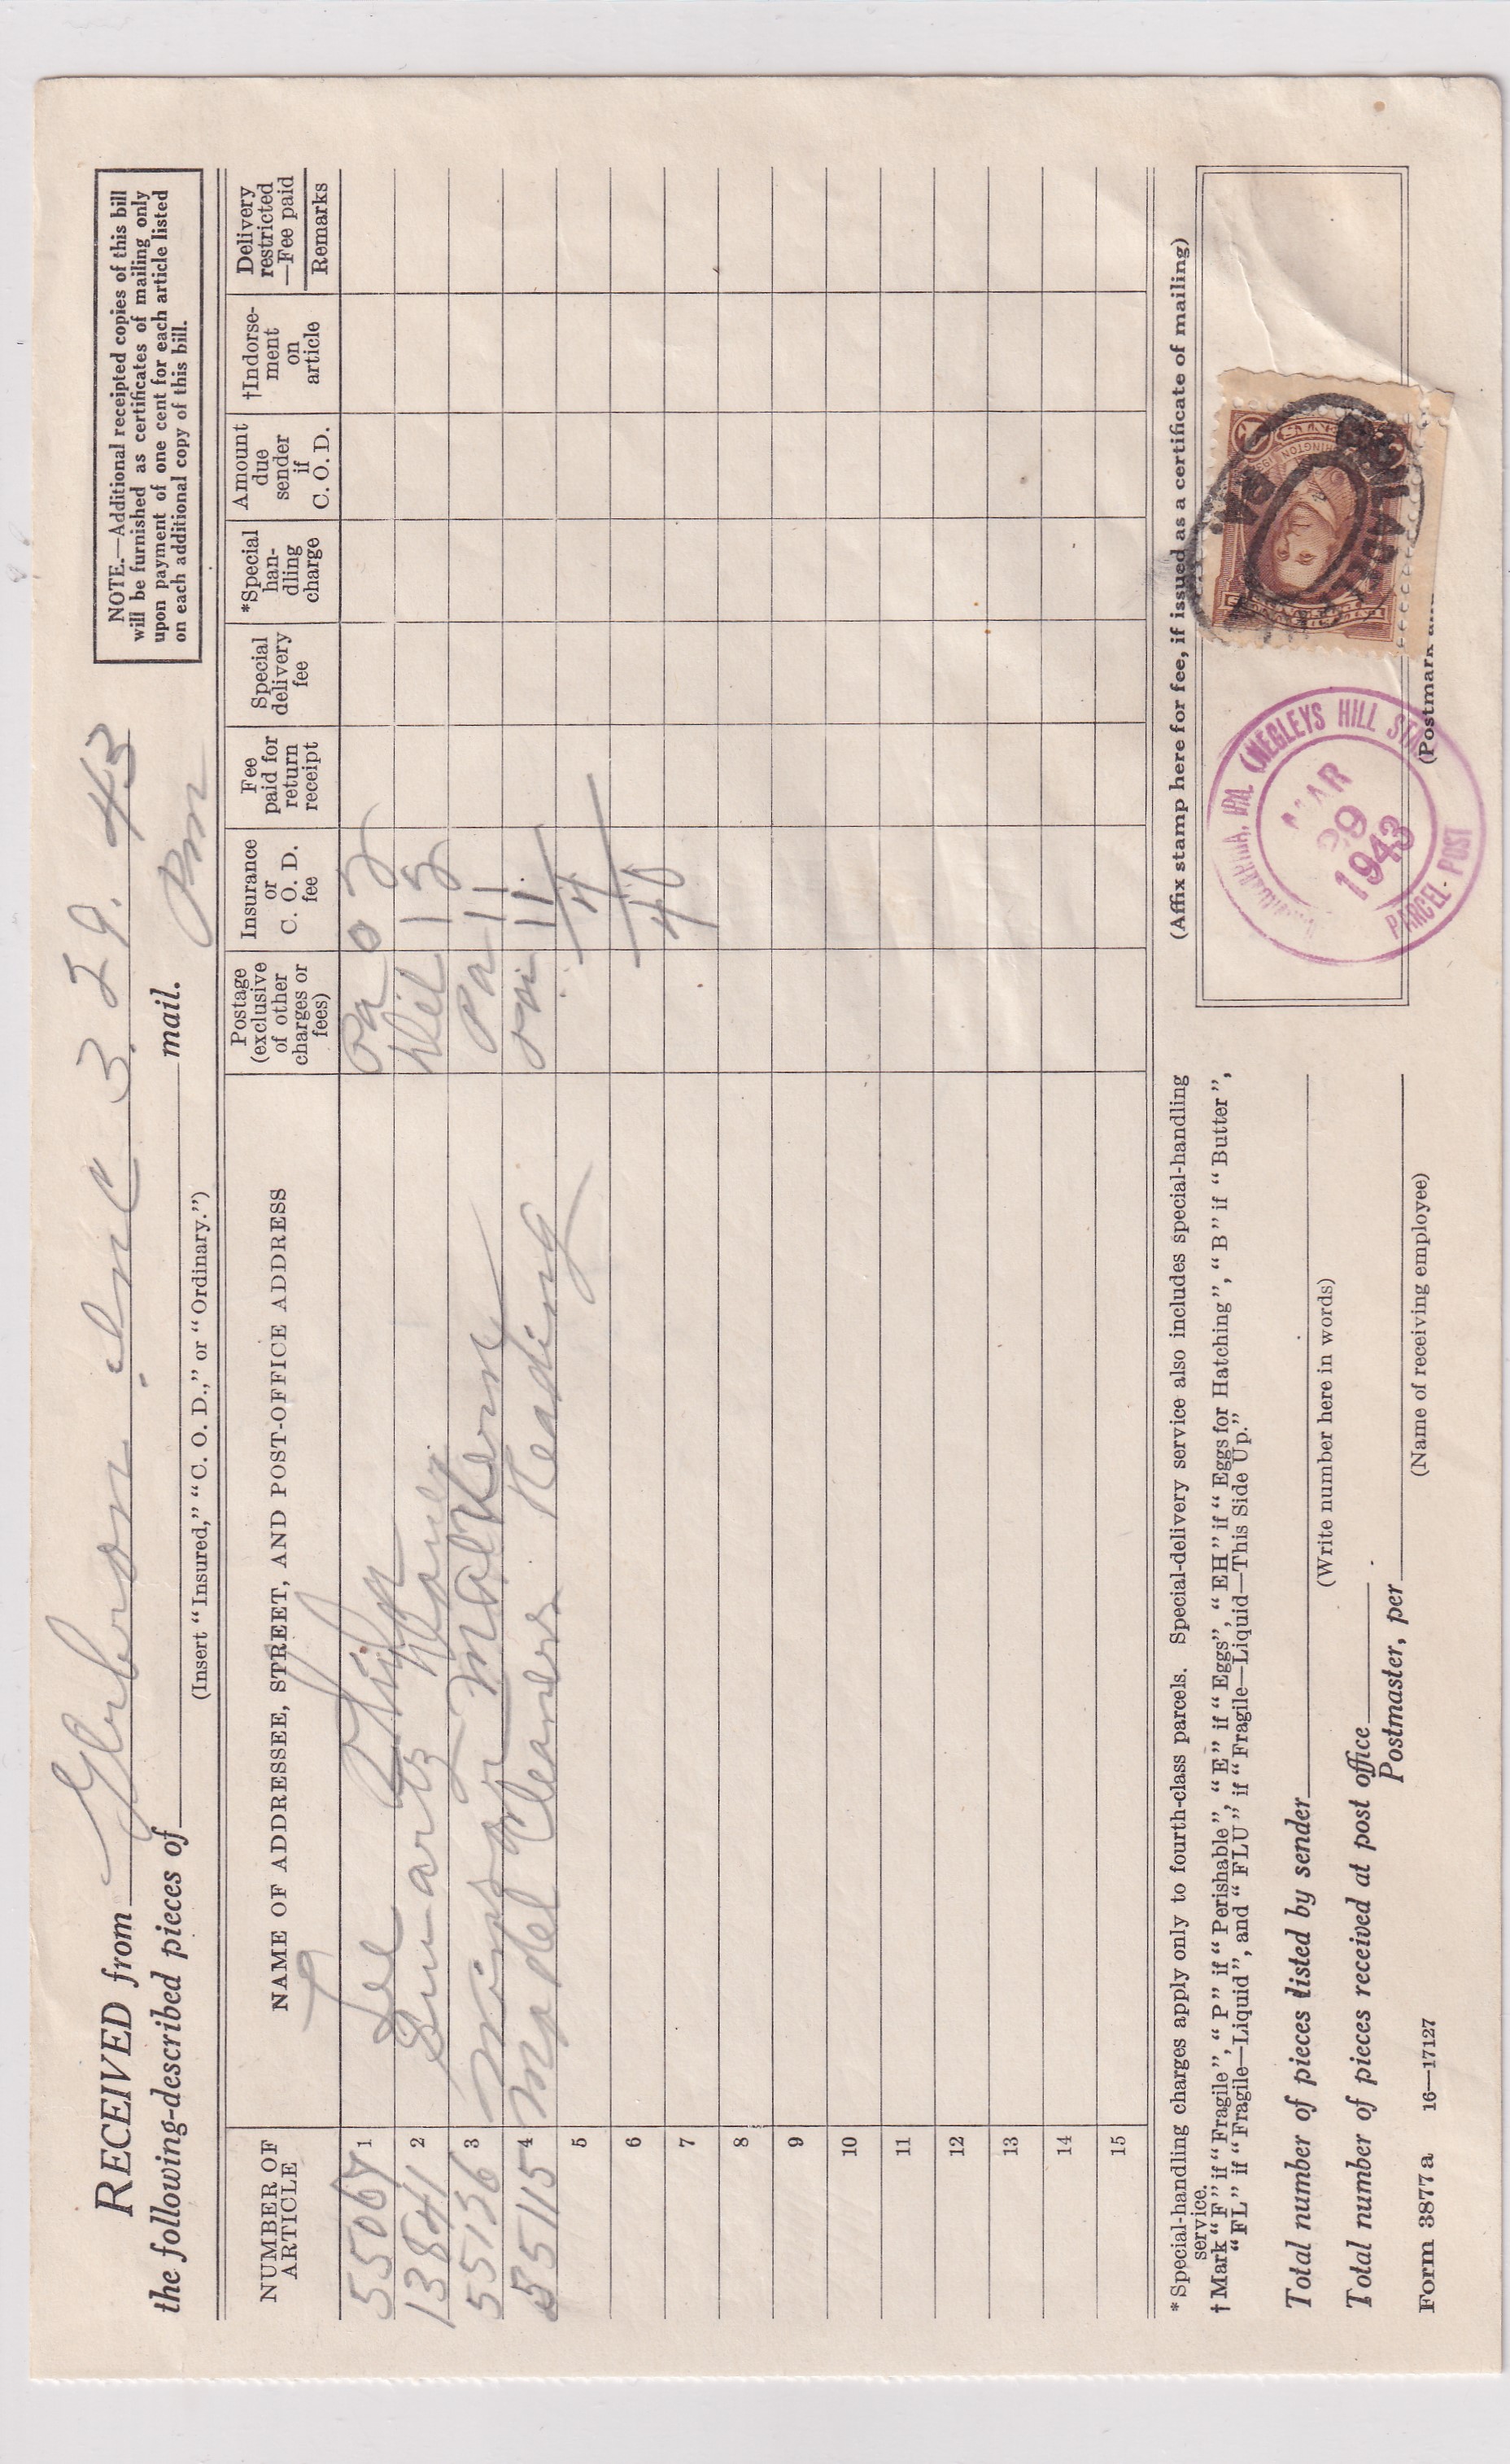 RECEIVED from Inc 3. 29. 43
the following-described pieces of mail. Pm
(Insert "Insured," "C. O. D.," or "Ordinary.")
NOTE.—Additional receipted copies of this bill
will be furnished as certificates of mailing only
upon payment of one cent for each article listed
on each additional copy of this bill.
NUMBER OF ARTICLE
NAME OF ADDRESSEE, STREET, AND POST-OFFICE ADDRESS
Postage (exclusive of other charges or fees)
Insurance or C. O. D. fee
Fee paid for return receipt
Special delivery fee
*Special han-dling charge
Amount due sender if C. O. D.
†Indorse-ment on article
Delivery restricted —Fee paid
Remarks
55067 1 Lee Pa
13841 2 Del 15
55136 3 Pa 11
55115 4 Model Cleaners Reading 11
5 4
6 40
7
8
9
10
11
12
13
14
15
*Special-handling charges apply only to fourth-class parcels. Special-delivery service also includes special-handling
service.
†Mark "F" if "Fragile", "P" if "Perishable", "E" if "Eggs", "EH" if "Eggs for Hatching", "B" if "Butter",
"FL" if "Fragile—Liquid", and "FLU" if "Fragile—Liquid—This Side Up."
Total number of pieces listed by sender
(Write number here in words)
Total number of pieces received at post office
Postmaster, per
(Name of receiving employee)
Form 3877a 16—17127
(Affix stamp here for fee, if issued as a certificate of mailing)
PA. (NEGLEYS HILL STA.
MAR
29
1943
PARCEL POST
PA.
(Postmark and